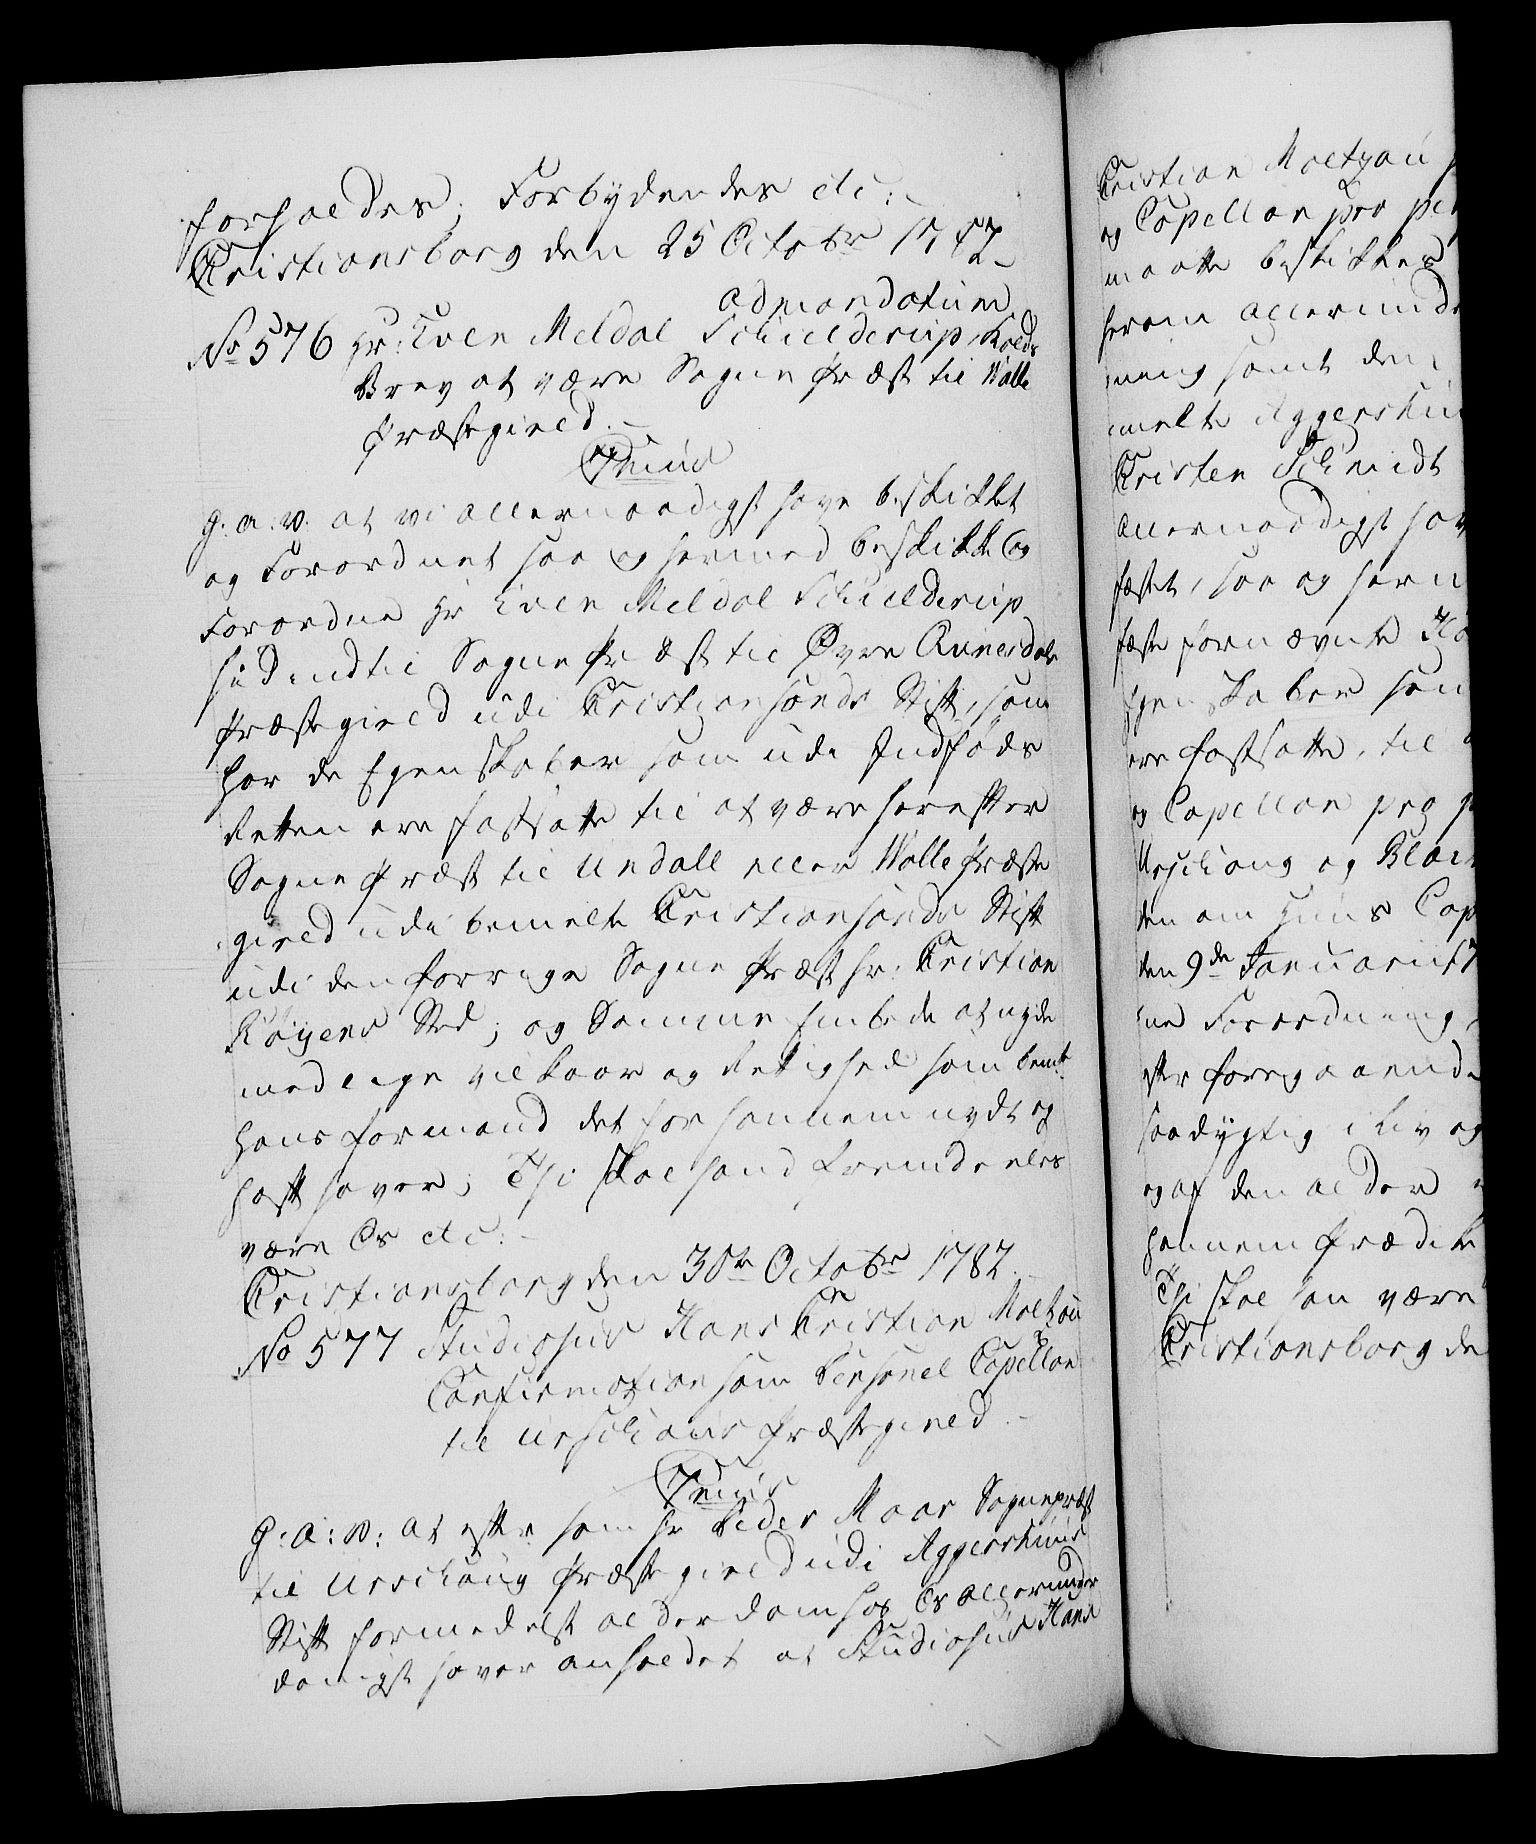 forholdes; Forbydendes etc:
Christiansborg den 25 Octobr 1782
admandatum
No 576 Hr: Even Meldal Schielderup, Kalds
Brev at være Sogne Præst til Walle
Præstegield.
C7mus
G: a: v: at vi allernaadigst have beskikket
og Forordnet saa og hermed beskikke og
Forordne Hr Even Meldal Schielderup
hid indtil Sogne Præst til Øvre Qvinesdals
Præstegield udi Christiansands Stift, som
har de Egenskaber som udi Indføds
Retten ere fastsatte til at være herefter
Sogne Præst til Undall eller Walle Præste
gield udi bemelte Christiansands Stift
udi den forrige Sogne Præst hr: Christian
Køyens Sted; og Samme Embede at nyde
med lige Vilkaar og Rettighed som bemte
hans formand det for hannem nydt og
haft haver; Thi skal hand fremdeeles
være Os etc:
Christiansborg den 30te Octobr 1782.
No 577 Studiosus Hans Christian Moltzau
Confirmation som Personel Capellan
til Urschous Præstegield
C7mus
G: a: v: at efter som hr Peder Maar Sognepræst
til Urschoug Præstegield udi Aggershuus
Stift formedelst alderdom hos Os allerunder
danigst haver anholdet at Studiosus Hans
Christian Moltzau
og Capellan pro pe
maatte beskikkes
herom allerunde
ning samt den
melte Aggershu
Christen Schmidt
allernaadigst hav
fæstet, saa og herm
fæste fornævnte Ha
Egenskaber som
ere fastsatte, til
og Capellan pro p
Urschoug og Blac
den om Huus Cap
den 9de Januarii 17
ne Forordning,
efter foregaaende
saa dygtig i Liv og
og af den alder
hannem Prædike
Thi skal han være
Christiansborg de